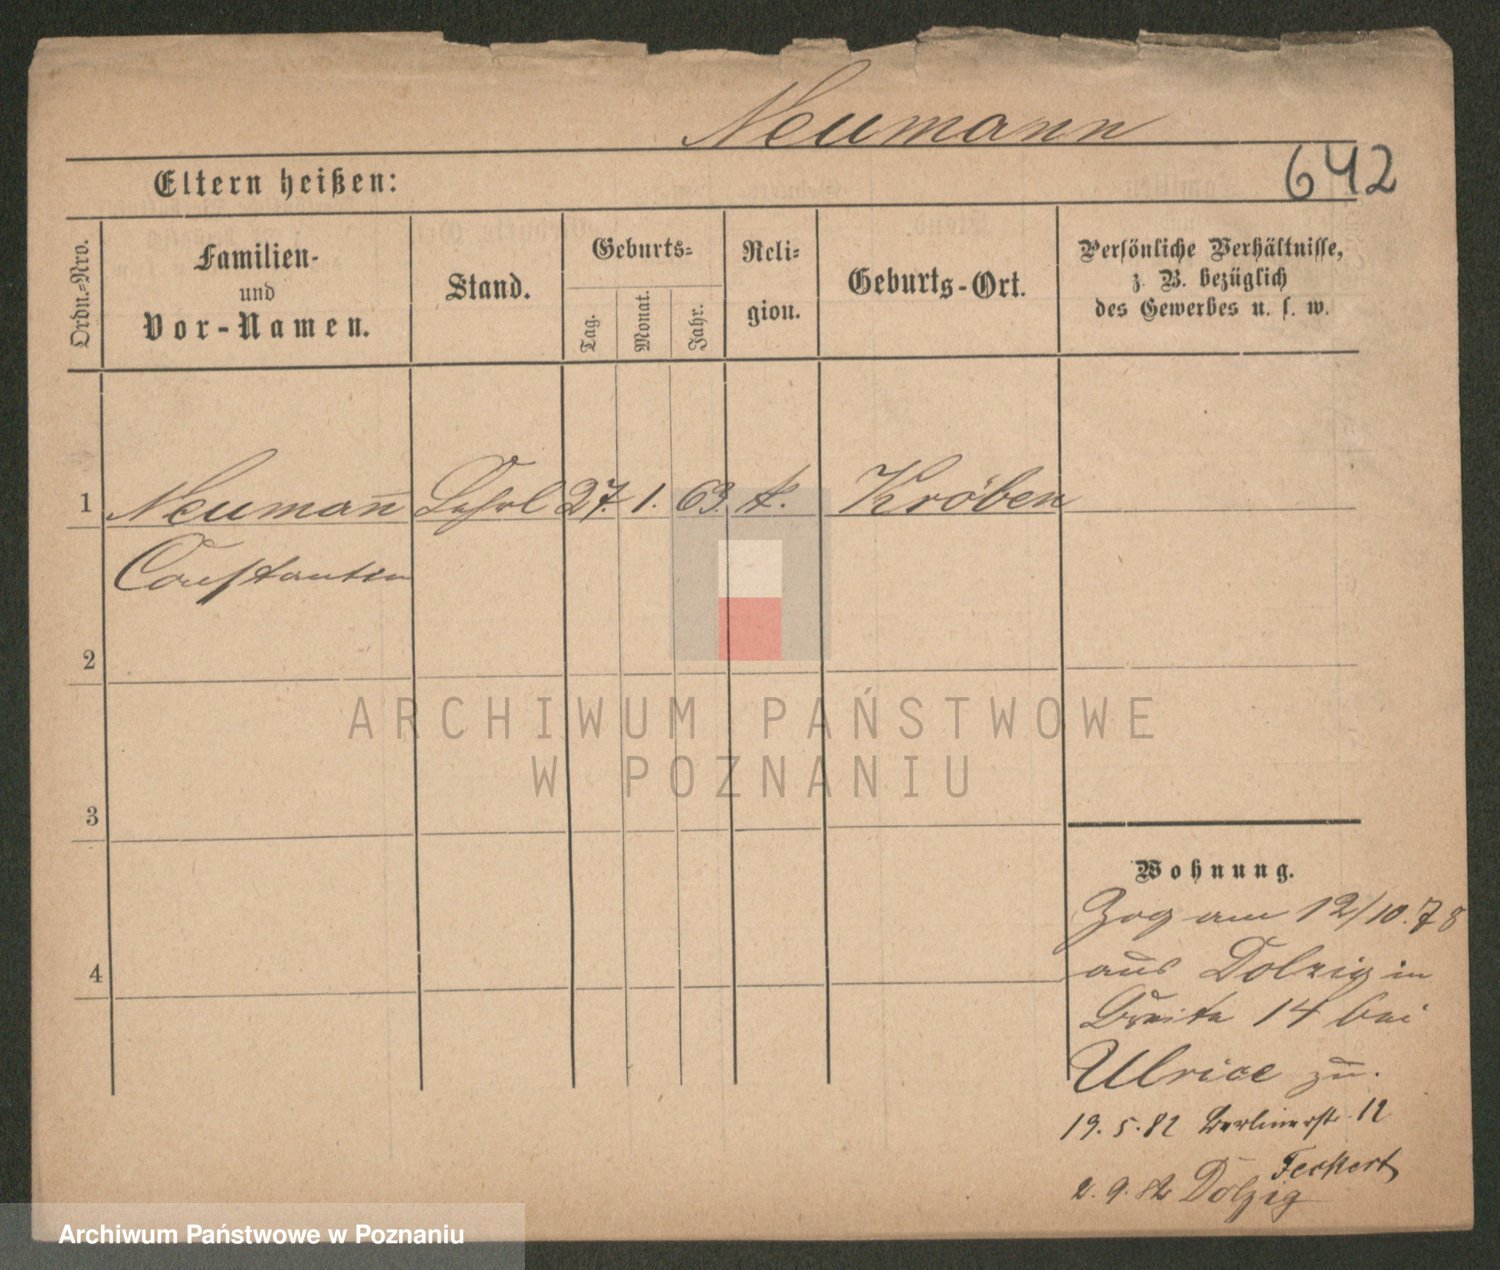 Neumann
642
Eltern heißen:
Ordn.-Nro.
Familien-
und
Vor-Namen.
Stand.
Geburts-
Tag.
Monat.
Jahr.
Reli-
gion.
Geburts-Ort.
Persönliche Verhältnisse,
z. B. bezüglich
des Gewerbes u. s. w.
1 Neumann̄ Lehrl 27. 1. 63. k. Kröben
Constantin
2
3
4
Wohnung.
Zog am 12/10.78
aus Dolzig in
Breite 14 bei
Ulrice zu.
19.5.82 Berlinerstr. 12
Feckert
2.9.82 Dolzig
ARCHIWUM PAŃSTWOWE
W POZNANIU
Archiwum Państwowe w Poznaniu